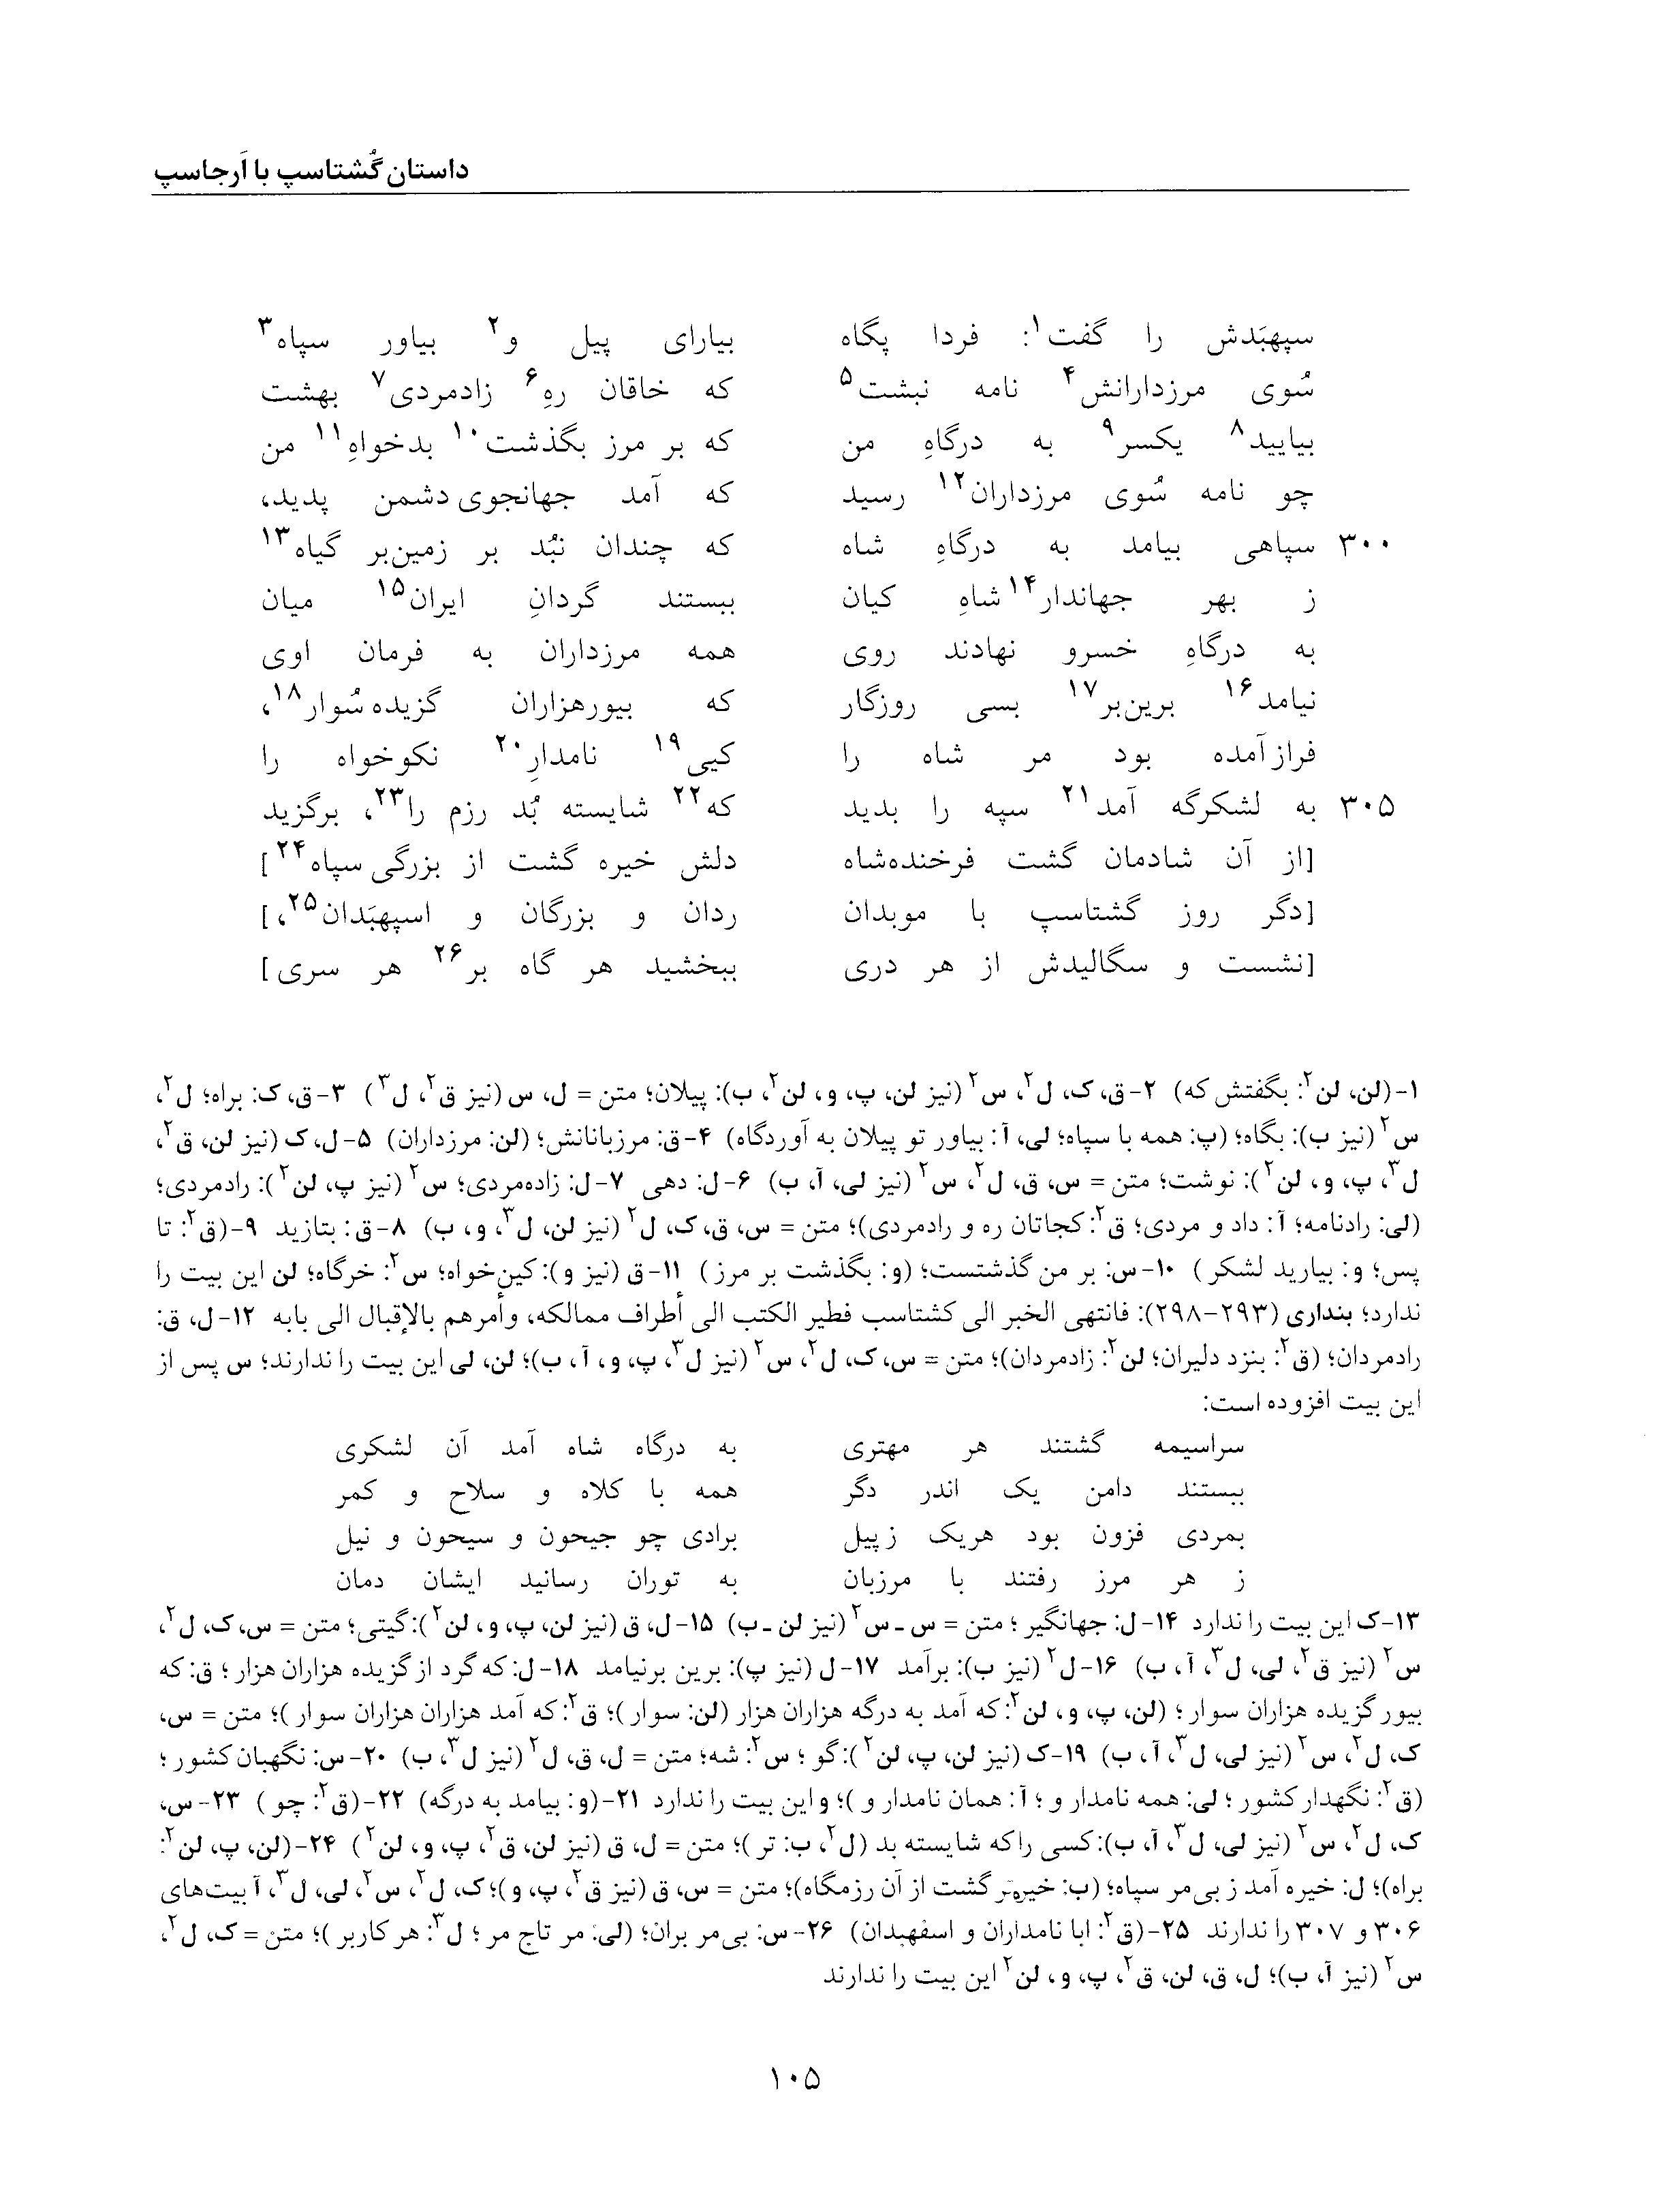 داستان گُشتاسپ با اَرجاسپ
سپهبَدش را گفت۱: فردا پگاه بیارای پیل و۲ بیاور سپاه۳
سُوی مرزدارانش۴ نامه نبشت۵ که خاقان رهِ۶ زادمردی۷ بهشت
بیایید۸ یکسر۹ به درگاهِ من که بر مرز بگذشت۱۰ بدخواهِ۱۱ من
چو نامه سُوی مرزداران۱۲ رسید که آمد جهانجوی دشمن پدید،
۳۰۰ سپاهی بیامد به درگاهِ شاه که چندان نبُد بر زمین‌بر گیاه۱۳
ز بهر جهاندار۱۴ شاهِ کیان ببستند گردانِ ایران۱۵ میان
به درگاهِ خسرو نهادند روی همه مرزداران به فرمان اوی
نیامد۱۶ برین‌بر۱۷ بسی روزگار که بیورهزاران گزیده سُوار۱۸،
فرازآمده بود مر شاه را کیی۱۹ نامدارِ۲۰ نکوخواه را
۳۰۵ به لشکرگه آمد۲۱ سپه را بدید که۲۲ شایسته بُد رزم را۲۳، برگزید
[از آن شادمان گشت فرخنده‌شاه دلش خیره گشت از بزرگی سپاه۲۴]
[دگر روز گشتاسپ با موبدان ردان و بزرگان و اسپهبَدان۲۵،]
[نشست و سگالیدش از هر دری ببخشید هر گاه بر۲۶ هر سری]
۱-(لن، لن۲: بگفتش که) ۲-ق، ک، ل۲، س۲ (نیز لن، پ، و، لن۲، ب): پیلان؛ متن = ل، س (نیز ق۲، ل۳) ۳-ق، ک: براه؛ ل۲،
س۲ (نیز ب): بگاه؛ (پ: همه با سپاه؛ لی، آ: بیاور تو پیلان به آوردگاه) ۴-ق: مرزبانانش؛ (لن: مرزداران) ۵-ل، ک (نیز لن، ق۲،
ل۳، پ، و، لن۲): نوشت؛ متن = س، ق، ل۲، س۲ (نیز لی، آ، ب) ۶-ل: دهی ۷-ل: زاده‌مردی؛ س۲ (نیز پ، لن۲): رادمردی؛
(لی: رادنامه؛ آ: داد و مردی؛ ق۲: کجاتان ره و رادمردی)؛ متن = س، ق، ک، ل۲ (نیز لن، ل۳، و، ب) ۸-ق: بتازید ۹-(ق۲: تا
پس؛ و: بیارید لشکر) ۱۰-س: بر من گذشتست؛ (و: بگذشت بر مرز) ۱۱-ق (نیز و): کین‌خواه؛ س۲: خرگاه؛ لن این بیت را
ندارد؛ بنداری (۲۹۳-۲۹۸): فانتهی الخبر الی کشتاسب فطیر الکتب الی أطراف ممالکه، وأمرهم بالإقبال الی بابه ۱۲-ل، ق:
رادمردان؛ (ق۲: بنزد دلیران؛ لن۲: زادمردان)؛ متن = س، ک، ل۲، س۲ (نیز ل۳، پ، و، آ، ب)؛ لن، لی این بیت را ندارند؛ س پس از
این بیت افزوده است:
سراسیمه گشتند هر مهتری به درگاه شاه آمد آن لشکری
ببستند دامن یک اندر دگر همه با کلاه و سلاح و کمر
بمردی فزون بود هریک ز پیل برادی چو جیحون و سیحون و نیل
ز هر مرز رفتند با مرزبان به توران رسانید ایشان دمان
۱۳-ک این بیت را ندارد ۱۴-ل: جهانگیر؛ متن = س ـ س۲ (نیز لن ـ ب) ۱۵-ل، ق (نیز لن، پ، و، لن۲): گیتی؛ متن = س، ک، ل۲،
س۲ (نیز ق۲، لی، ل۳، آ، ب) ۱۶-ل۲ (نیز ب): برآمد ۱۷-ل (نیز پ): برین برنیامد ۱۸-ل: که گرد از گزیده هزاران هزار؛ ق: که
بیور گزیده هزاران سوار؛ (لن، پ، و، لن۲: که آمد به درگه هزاران هزار (لن: سوار)؛ ق۲: که آمد هزاران هزاران سوار)؛ متن = س،
ک، ل۲، س۲ (نیز لی، ل۳، آ، ب) ۱۹-ک (نیز لن، پ، لن۲): گو؛ س۲: شه؛ متن = ل، ق، ل۲ (نیز ل۳، ب) ۲۰-س: نگهبان کشور؛
(ق۲: نگهدار کشور؛ لی: همه نامدار و؛ آ: همان نامدار و)؛ و این بیت را ندارد ۲۱-(و: بیامد به درگه) ۲۲-(ق۲: چو) ۲۳-س،
ک، ل۲، س۲ (نیز لی، ل۳، آ، ب): کسی را که شایسته بد (ل۲، ب: تر)؛ متن = ل، ق (نیز لن، ق۲، پ، و، لن۲) ۲۴-(لن، پ، لن۲:
براه)؛ ل: خیره آمد ز بی‌مر سپاه؛ (ب: خیره‌تر گشت از آن رزمگاه)؛ متن = س، ق (نیز ق۲، پ، و)؛ ک، ل۲، س۲، لی، ل۳، آ بیت‌های
۳۰۶ و ۳۰۷ را ندارند ۲۵-(ق۲: ابا نامداران و اسفهبدان) ۲۶-س: بی‌مر بران؛ (لی: مر تاج مر؛ ل۳: هر کاربر)؛ متن = ک، ل۲،
س۲ (نیز آ، ب)؛ ل، ق، لن، ق۲، پ، و، لن۲ این بیت را ندارند
۱۰۵